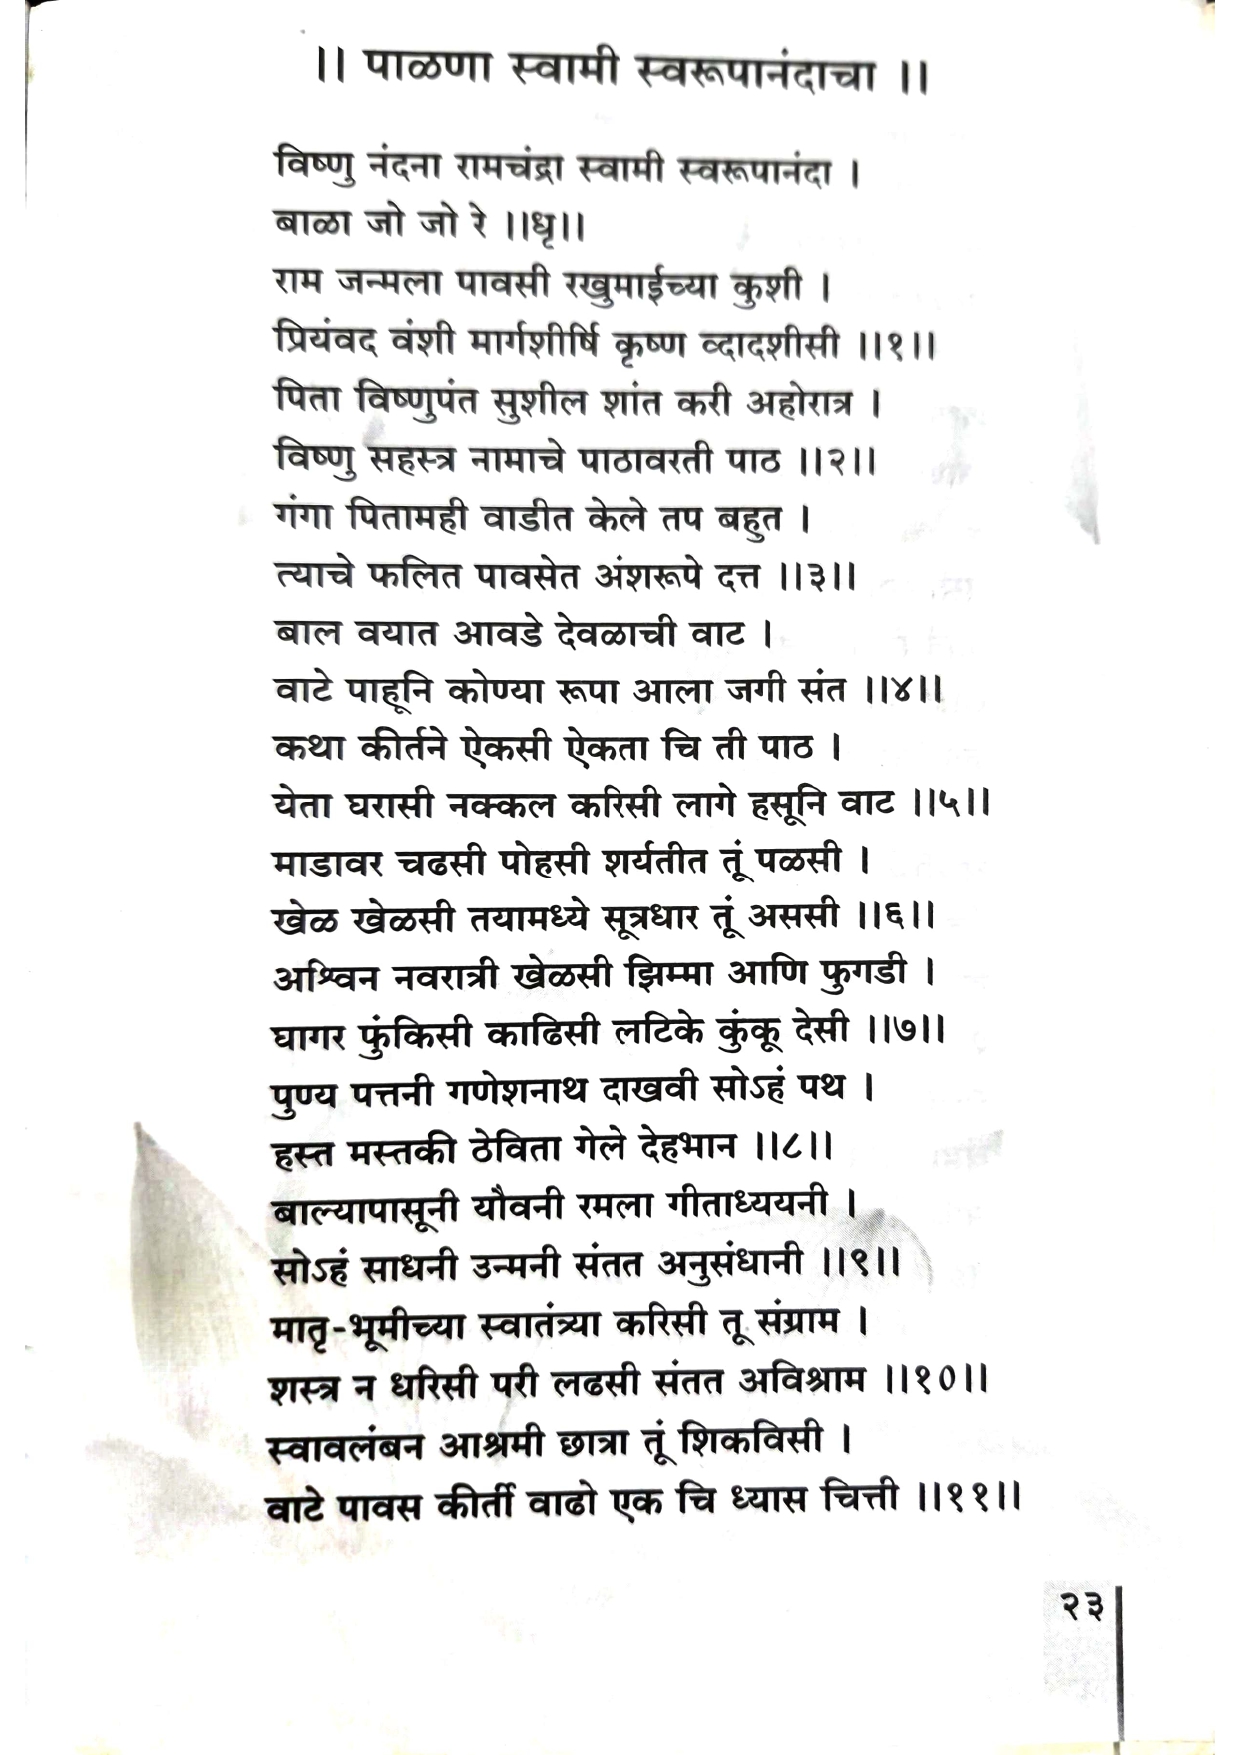 ।। पाळणा स्वामी स्वरूपानंदाचा ।।
विष्णु नंदना रामचंद्रा स्वामी स्वरूपानंदा ।
बाळा जो जो रे ।।धृ।।
राम जन्मला पावसी रखुमाईच्या कुशी ।
प्रियंवद वंशी मार्गशीर्षि कृष्ण व्दादशीसी ।।१।।
पिता विष्णुपंत सुशील शांत करी अहोरात्र ।
विष्णु सहस्त्र नामाचे पाठावरती पाठ ।।२।।
गंगा पितामही वाडीत केले तप बहुत ।
त्याचे फलित पावसेत अंशरूपे दत्त ।।३।।
बाल वयात आवडे देवळाची वाट ।
वाटे पाहूनि कोण्या रूपा आला जगी संत ।।४।।
कथा कीर्तने ऐकसी ऐकता चि ती पाठ ।
येता घरासी नक्कल करिसी लागे हसूनि वाट ।।५।।
माडावर चढसी पोहसी शर्यतीत तूं पळसी ।
खेळ खेळसी तयामध्ये सूत्रधार तूं अससी ।।६।।
अश्विन नवरात्री खेळसी झिम्मा आणि फुगडी ।
घागर फुंकिसी काढिसी लटिके कुंकू देसी ।।७।।
पुण्य पत्तनी गणेशनाथ दाखवी सोऽहं पथ ।
हस्त मस्तकी ठेविता गेले देहभान ।।८।।
बाल्यापासूनी यौवनी रमला गीताध्ययनी ।
सोऽहं साधनी उन्मनी संतत अनुसंधानी ।।९।।
मातृ-भूमीच्या स्वातंत्र्या करिसी तू संग्राम ।
शस्त्र न धरिसी परी लढसी संतत अविश्राम ।।१०।।
स्वावलंबन आश्रमी छात्रा तूं शिकविसी ।
वाटे पावस कीर्ती वाढो एक चि ध्यास चित्ती ।।११।।
२३